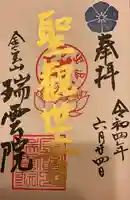 奉拝
令和四年
六月廿四日
聖観世音
瑞雲院